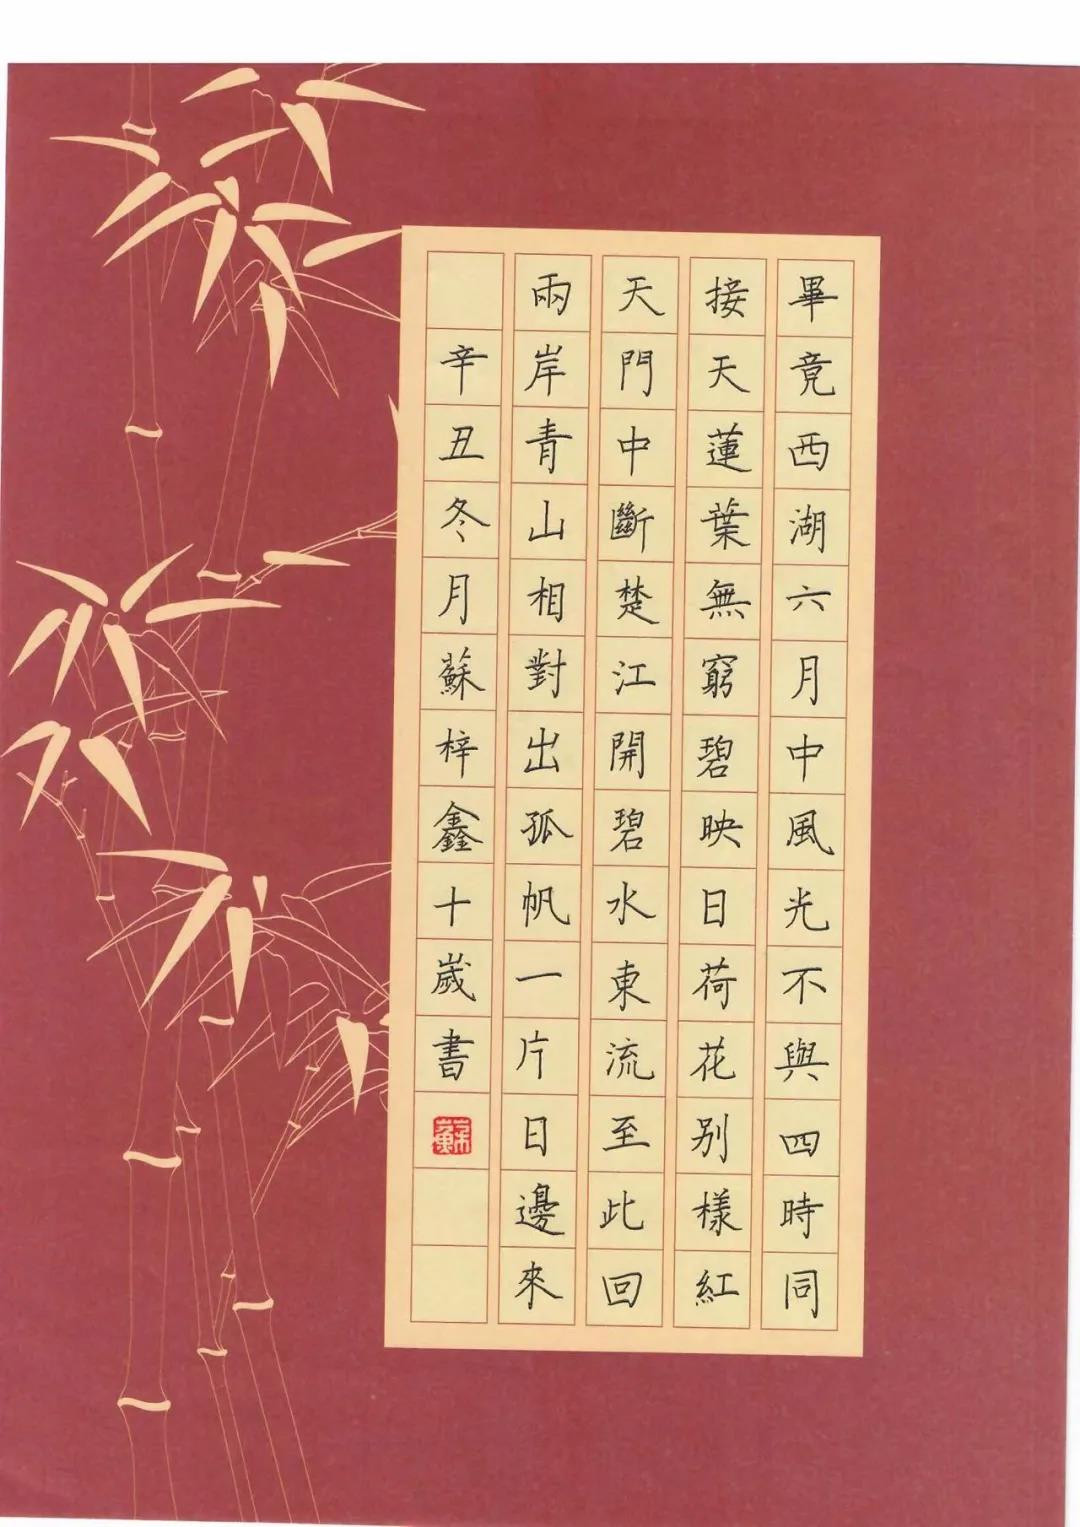 畢竟西湖六月中風光不與四時同
接天蓮葉無窮碧映日荷花别樣紅
天門中斷楚江開碧水東流至此回
兩岸青山相對出孤帆一片日邊來
辛丑冬月蘇梓鑫十歲書